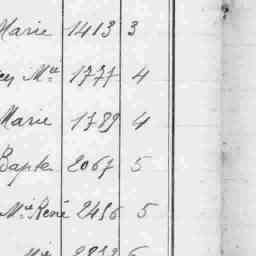 Marie 1413 3
Mce 1777 4
Marie 1789 4
Bapte 2067 5
Mce René 2456 5